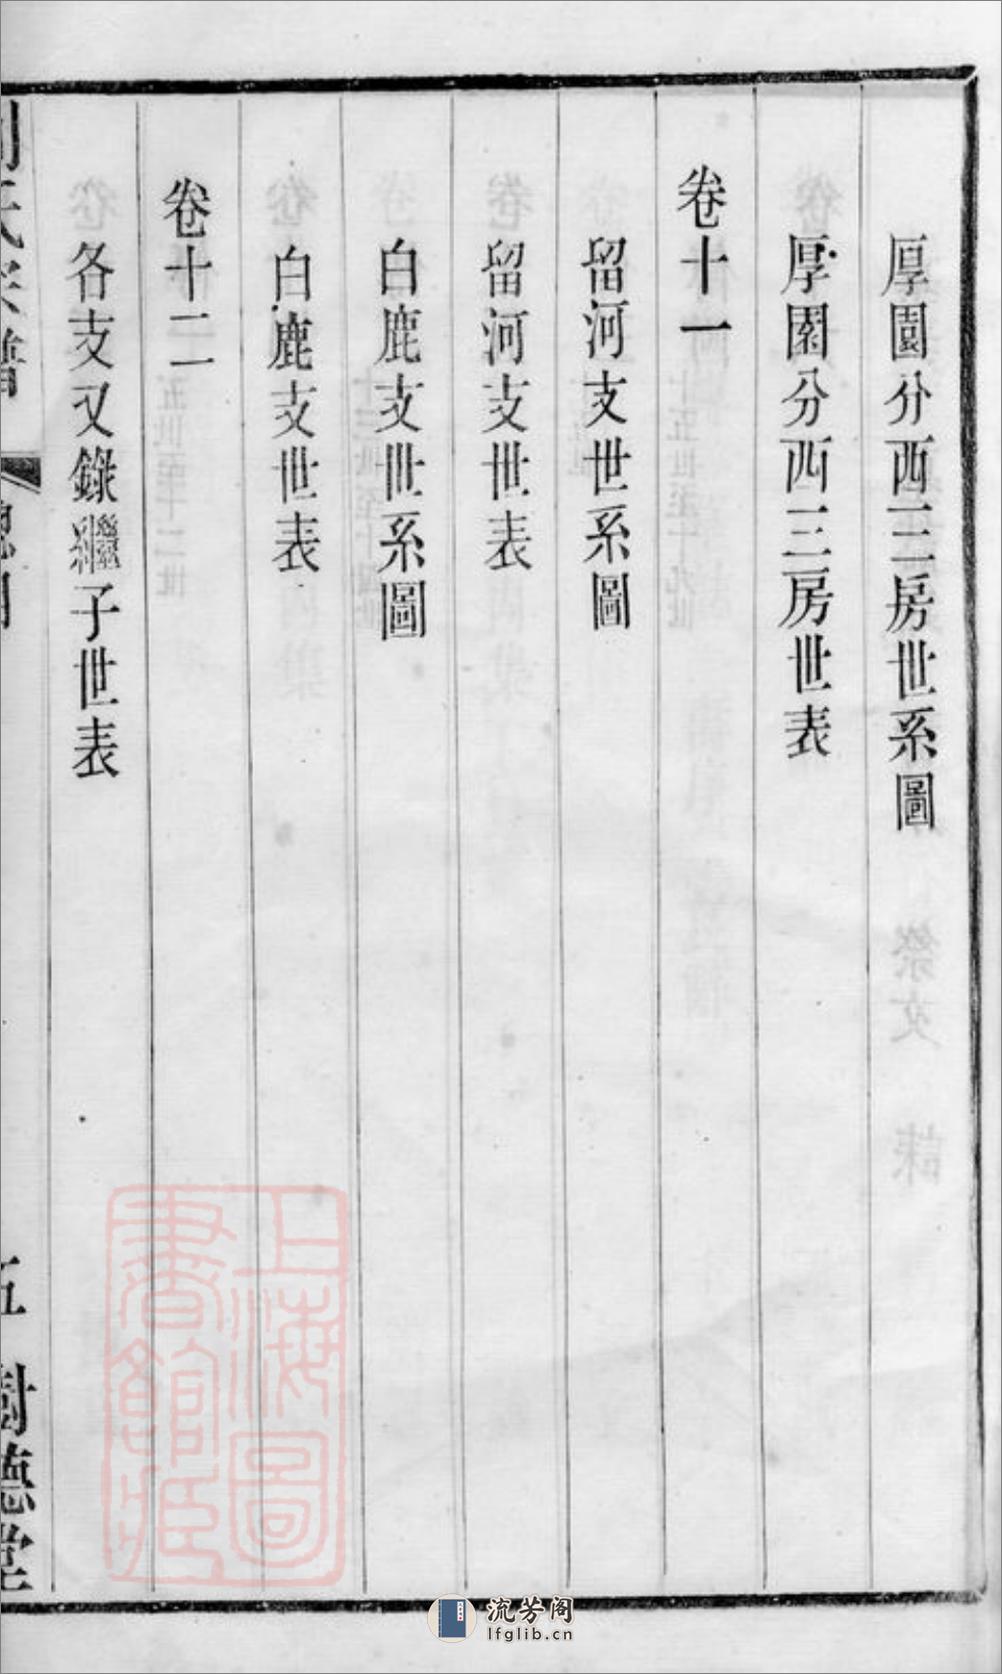 厚園分西二房世系圖
厚園分西三房世表
卷十一
留河支世系圖
留河支世表
白鹿支世系圖
白鹿支世表
卷十二
各支又錄繼子世表
五 樹德堂
上海圖書館藏
流芳阁
lfglib.cn